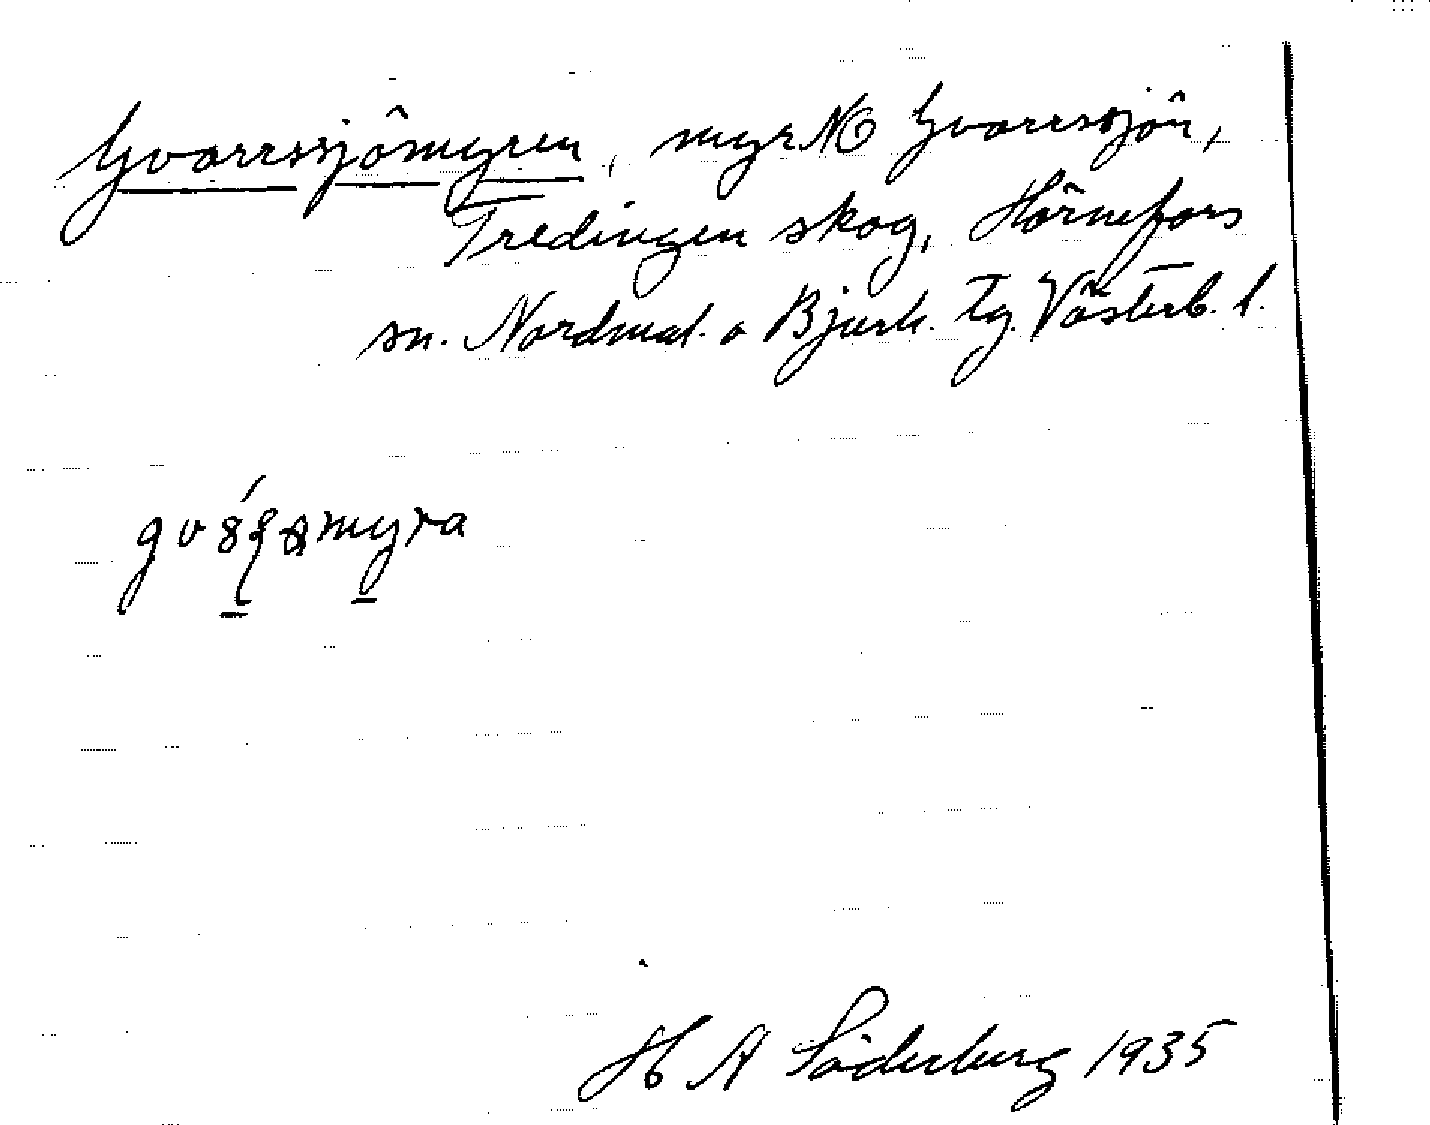 Gvarrsjömyren, myr NO Gvarrsjön,
Tredingen skog, Hörnefors
sn. Nordmal. o Bjurh. tg. Västerb. l.
H A Söderberg 1935